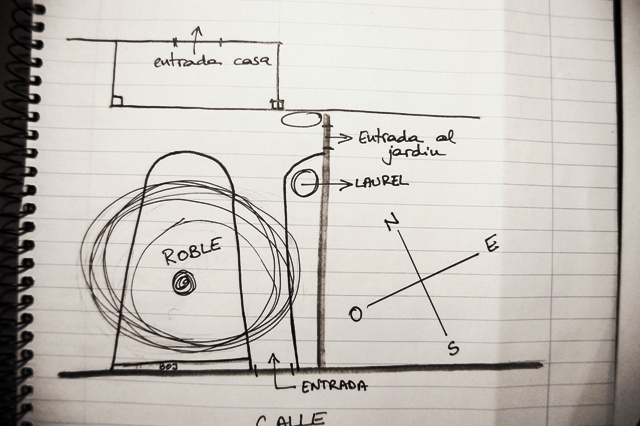 entrada casa
Entrada al
jardin
LAUREL
ROBLE
N
E
O
S
ENTRADA
CALLE